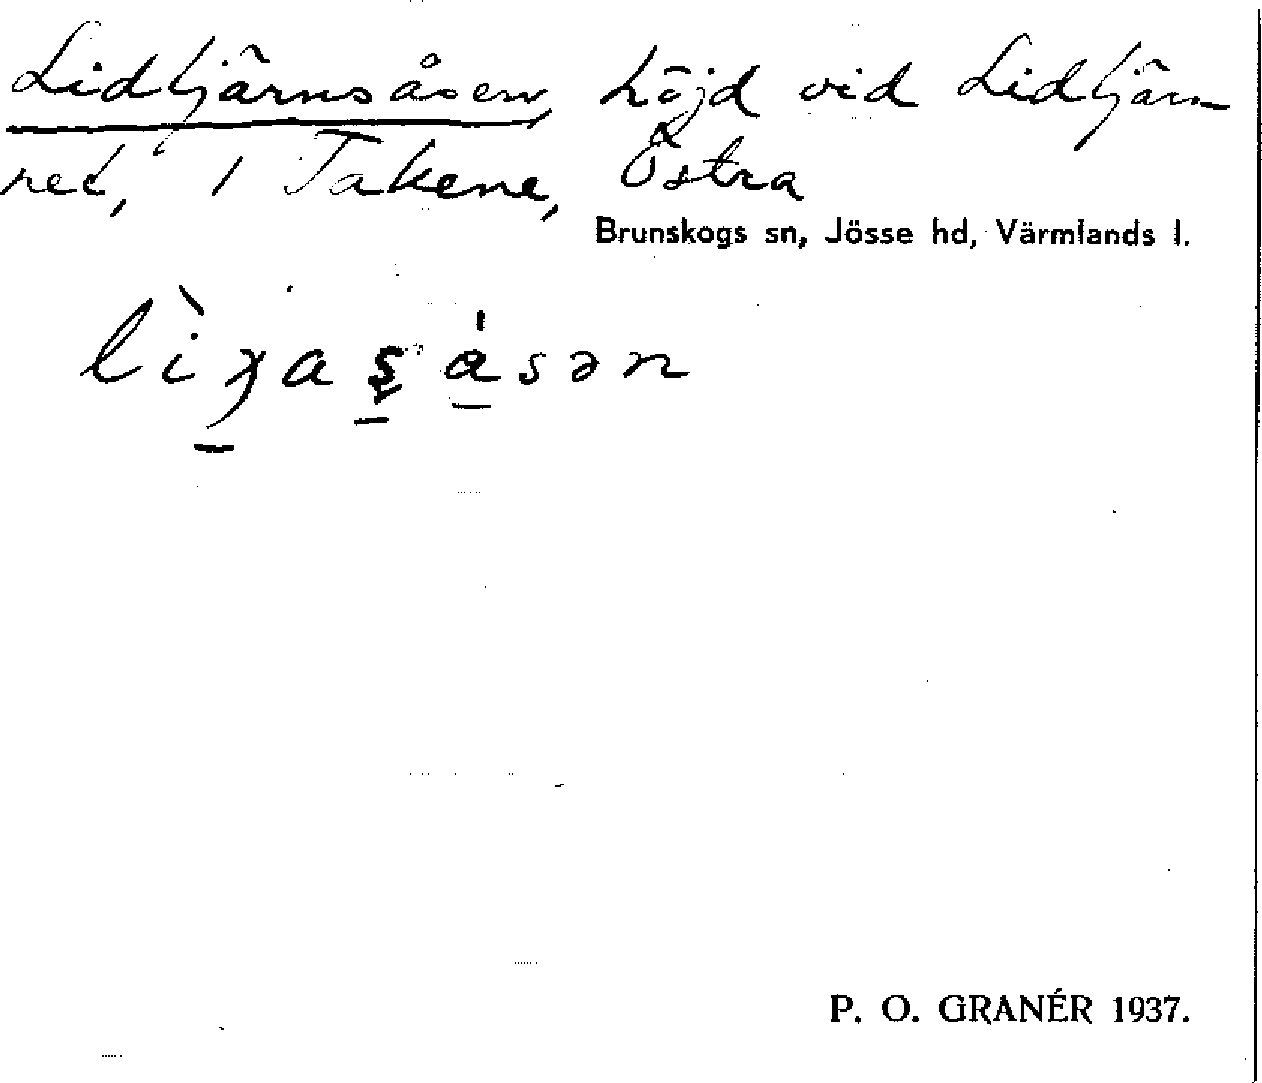 Lidtjärnsåsen, höjd vid Lidtjär-
net, i Takene, Östra
Brunskogs sn, Jösse hd, Värmlands l.
P. O. GRANÉR 1937.